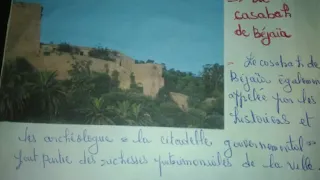 La
casabah
de Béjaïa
- Le casabah de
Béjaïa égaleme
appelée par les
historiens et
les archéologue " la citadelle gouvernemental "
fait partie des richesses patrimoniales de la ville.